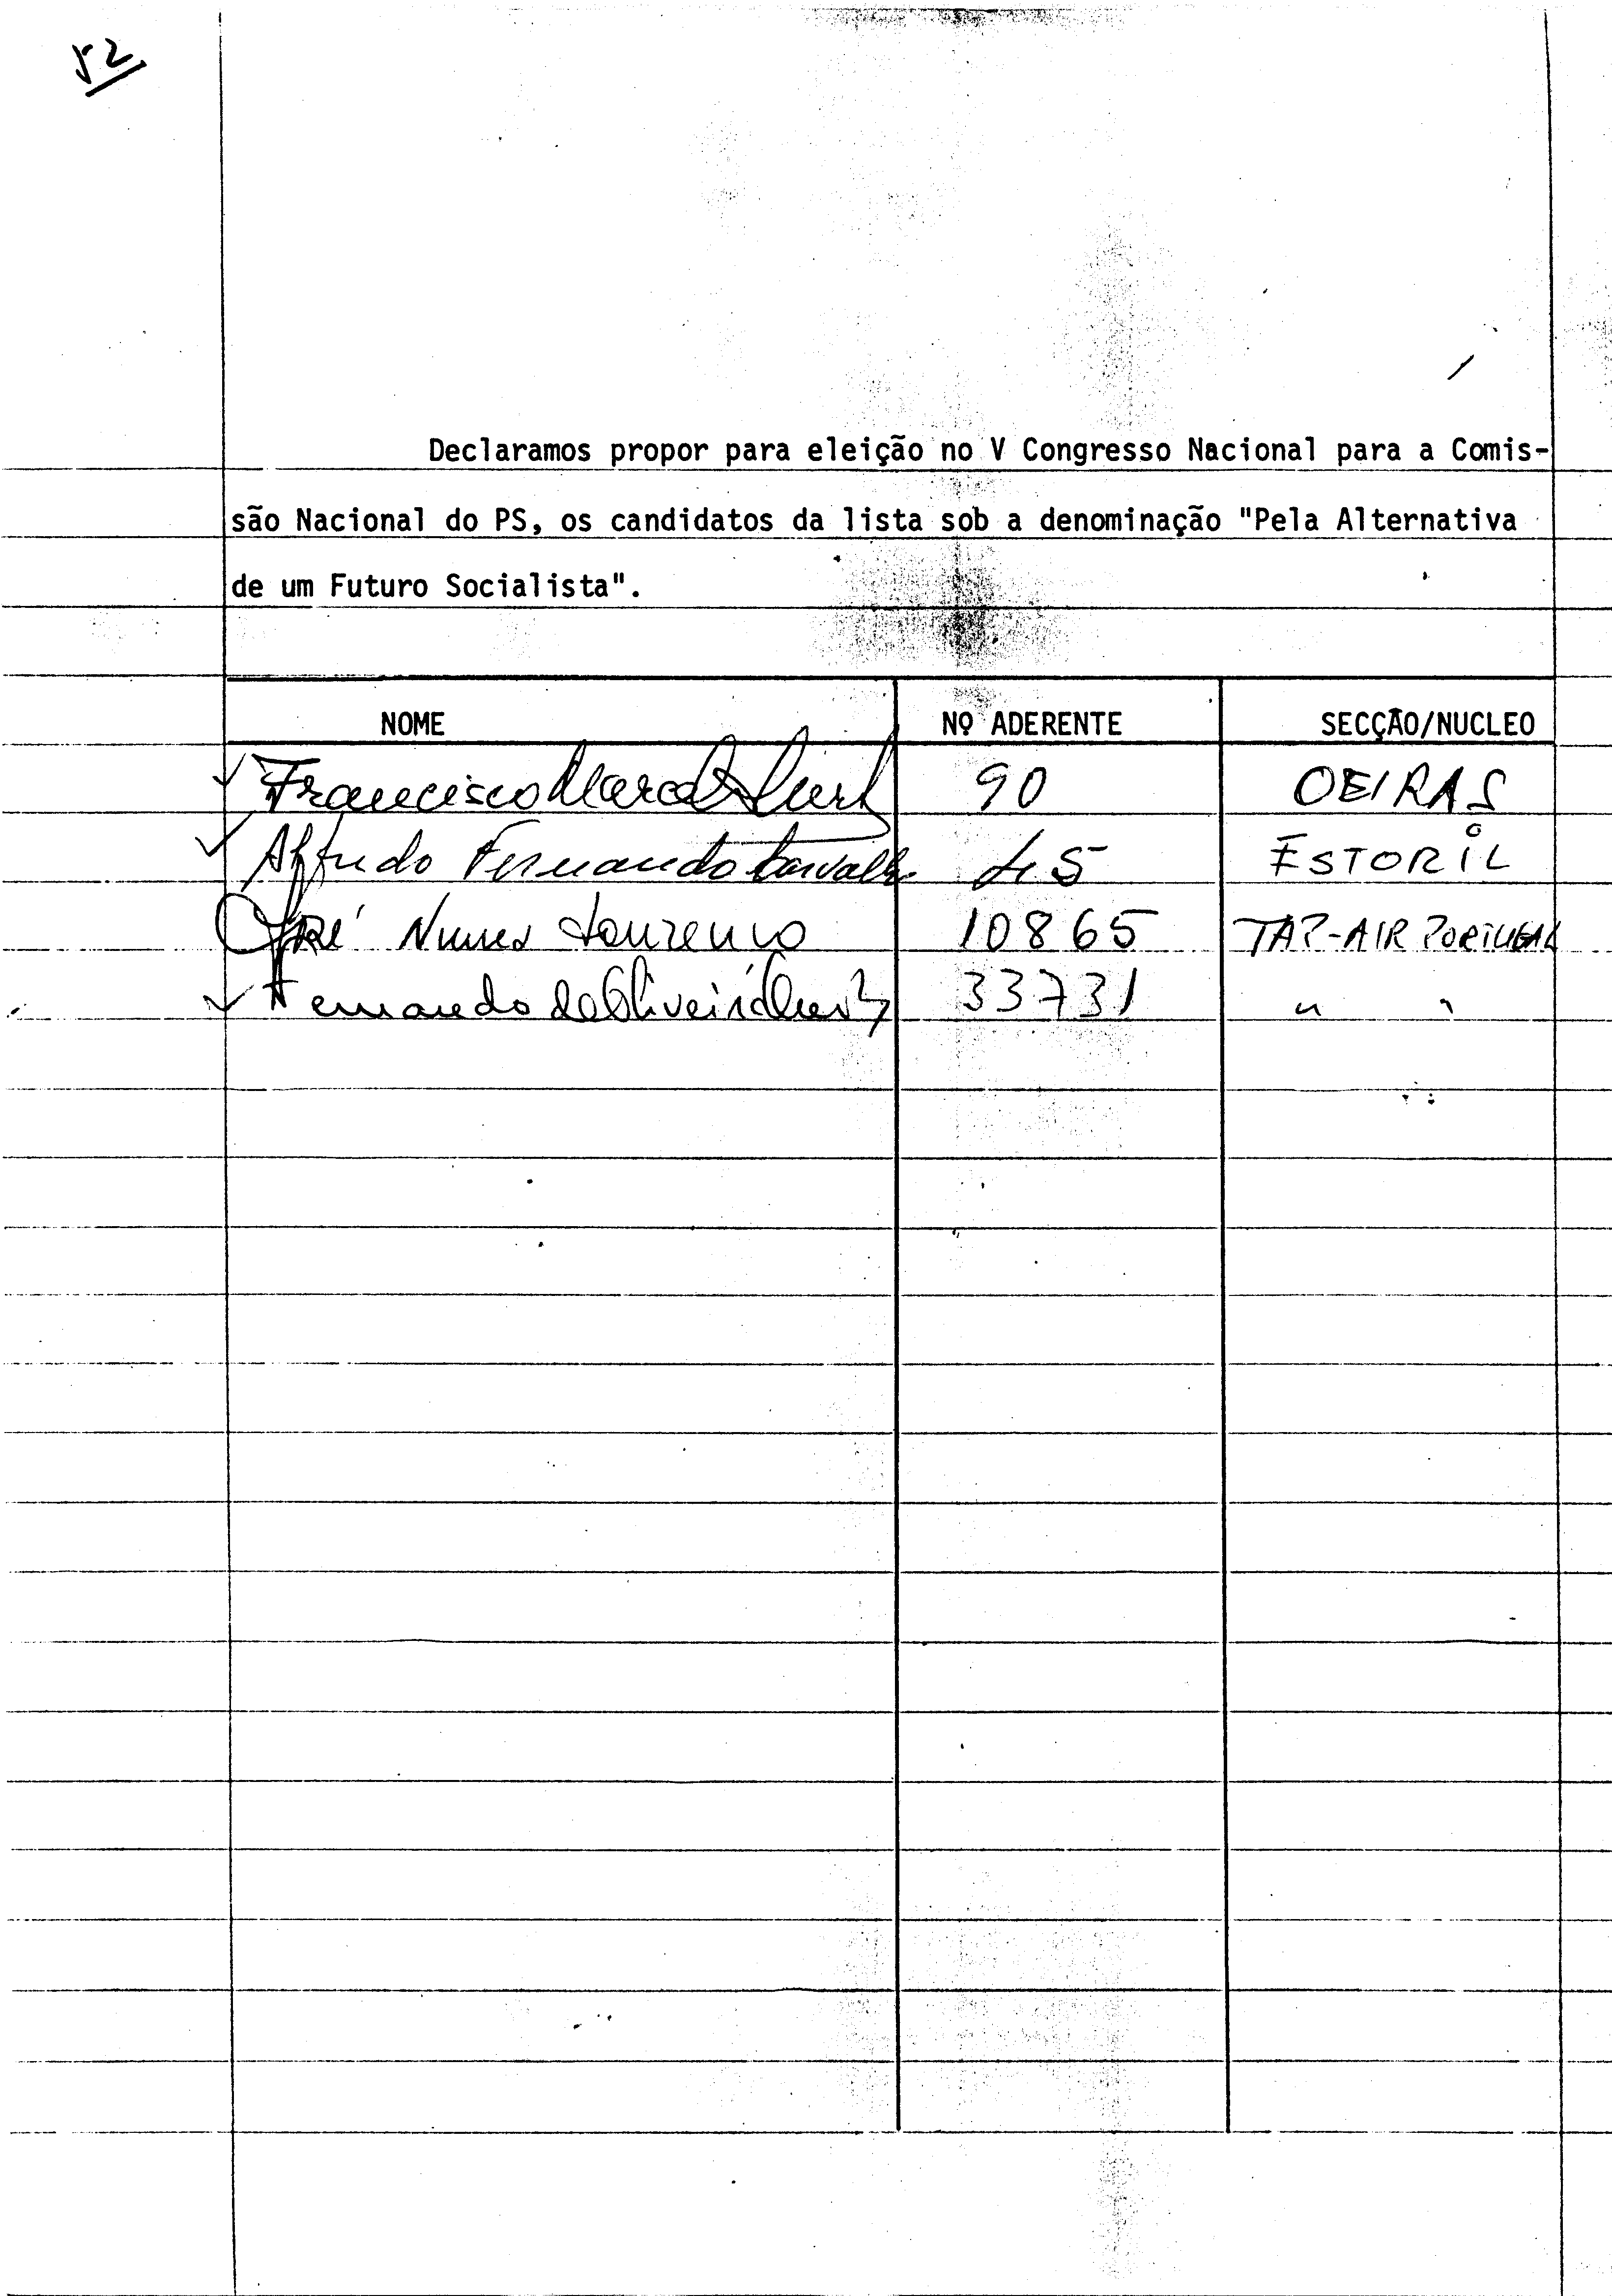 52
Declaramos propor para eleição no V Congresso Nacional para a Comis-
são Nacional do PS, os candidatos da lista sob a denominação "Pela Alternativa
de um Futuro Socialista".
NOME Nº ADERENTE SECÇÃO/NUCLEO
Francisco 90 OEIRAS
Alfredo Fernando Carvalho 45 ESTORIL
José Nunes Lourenço 10865 TAP-AIR PORTUGAL
Fernando de Oliveira 33731 " "